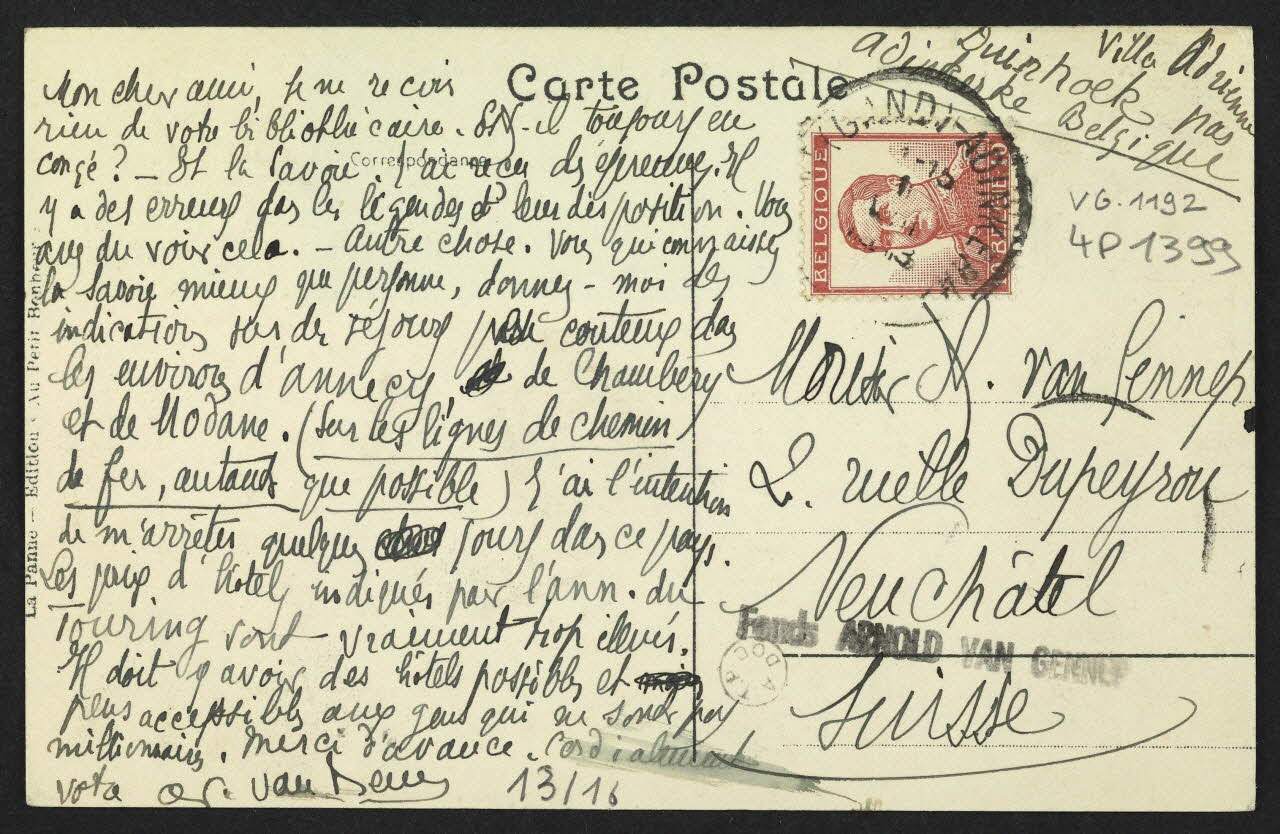 Carte Postale
Correspondance
Mon cher ami, Je ne reçois
rien de votre bibliothécaire. Est-il toujours en
congé ? — Et la Savoie. J'ai reçu des épreuves. Il
y a des erreurs dans les légendes et leur disposition. Vous
avez du voir cela. — Autre chose. Vous qui connaissez
la Savoie mieux que personne, donnez-moi des
indications sur des séjours peu couteux dans
les environs d'Annecy de Chambery
et de Modane. (Sur les lignes de chemin
de fer, autant que possible) J'ai l'intention
de m'arrêter quelques jours dans ce pays.
Les prix d'hôtels indiqués par l'ann. du
Touring sont vraiment trop élevés.
Il doit y avoir des hôtels possibles et
pens accessibles aux gens qui ne sont pas
millionnaires. Merci d'avance. Cordialement
votre
13/16
Villa Adrienne
Duinhoek
Adinkerke
Belgique
BELGIQUE
GAND
VG.1192
4P 1399
Monsieur A. van Gennep
2. ruelle Dupeyrou
Neuchâtel
Suisse
Fonds ARNOLD VAN GENNEP
DOC A.T.P.
La Panne — Edition « Au Petit Bonheur